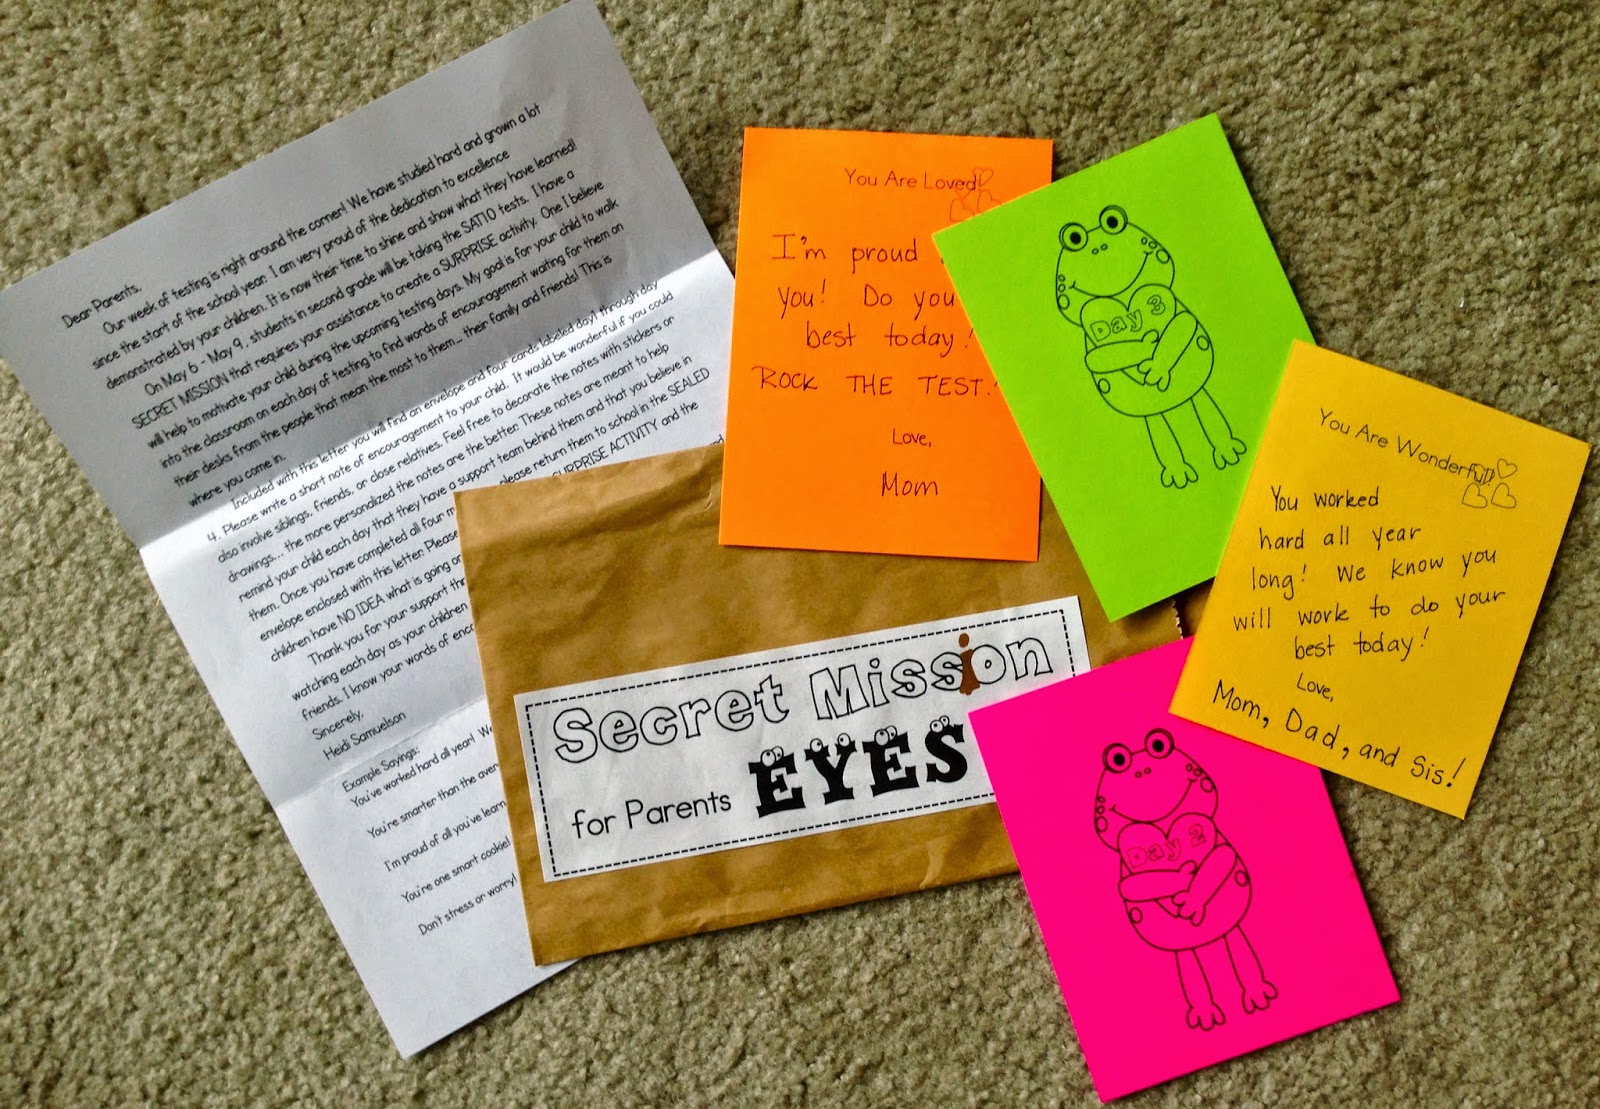 Dear Parents,
Our week of testing is right around the corner! We have studied hard and grown a lot
since the start of the school year. I am very proud of the dedication to excellence
demonstrated by your children. It is now their time to shine and show what they have learned!
On May 6 - May 9, students in second grade will be taking the SAT10 tests. I have a
SECRET MISSION that requires your assistance to create a SURPRISE activity. One I believe
will help to motivate your child during the upcoming testing days. My goal is for your child to walk
into the classroom on each day of testing to find words of encouragement waiting for them on
their desks from the people that mean the most to them... their family and friends! This is
where you come in.
Included with this letter you will find an envelope and four cards labeled day1 through day
4. Please write a short note of encouragement to your child. It would be wonderful if you could
also involve siblings, friends, or close relatives. Feel free to decorate the notes with stickers or
drawings... the more personalized the notes are the better. These notes are meant to help
remind your child each day that they have a support team behind them and that you believe in
them. Once you have completed all four please return them to school in the SEALED
envelope enclosed with this letter. Please SURPRISE ACTIVITY and the
children have NO IDEA what is going on
Thank you for your support
watching each day as your children
friends. I know your words of
Sincerely,
Heidi Samuelson
Example Sayings:
You've worked hard all year! We
You're smarter than the
I'm proud of all you've
You're one smart cookie!
Don't stress or worry!
Secret Mission
for Parents EYES
You Are Loved!
I'm proud
you! Do you
best today!
ROCK THE TEST!
Love,
Mom
Day 3
You Are Wonderful!
You worked
hard all year
long! We know you
will work to do your
best today!
Love,
Mom, Dad, and Sis!
Day 2